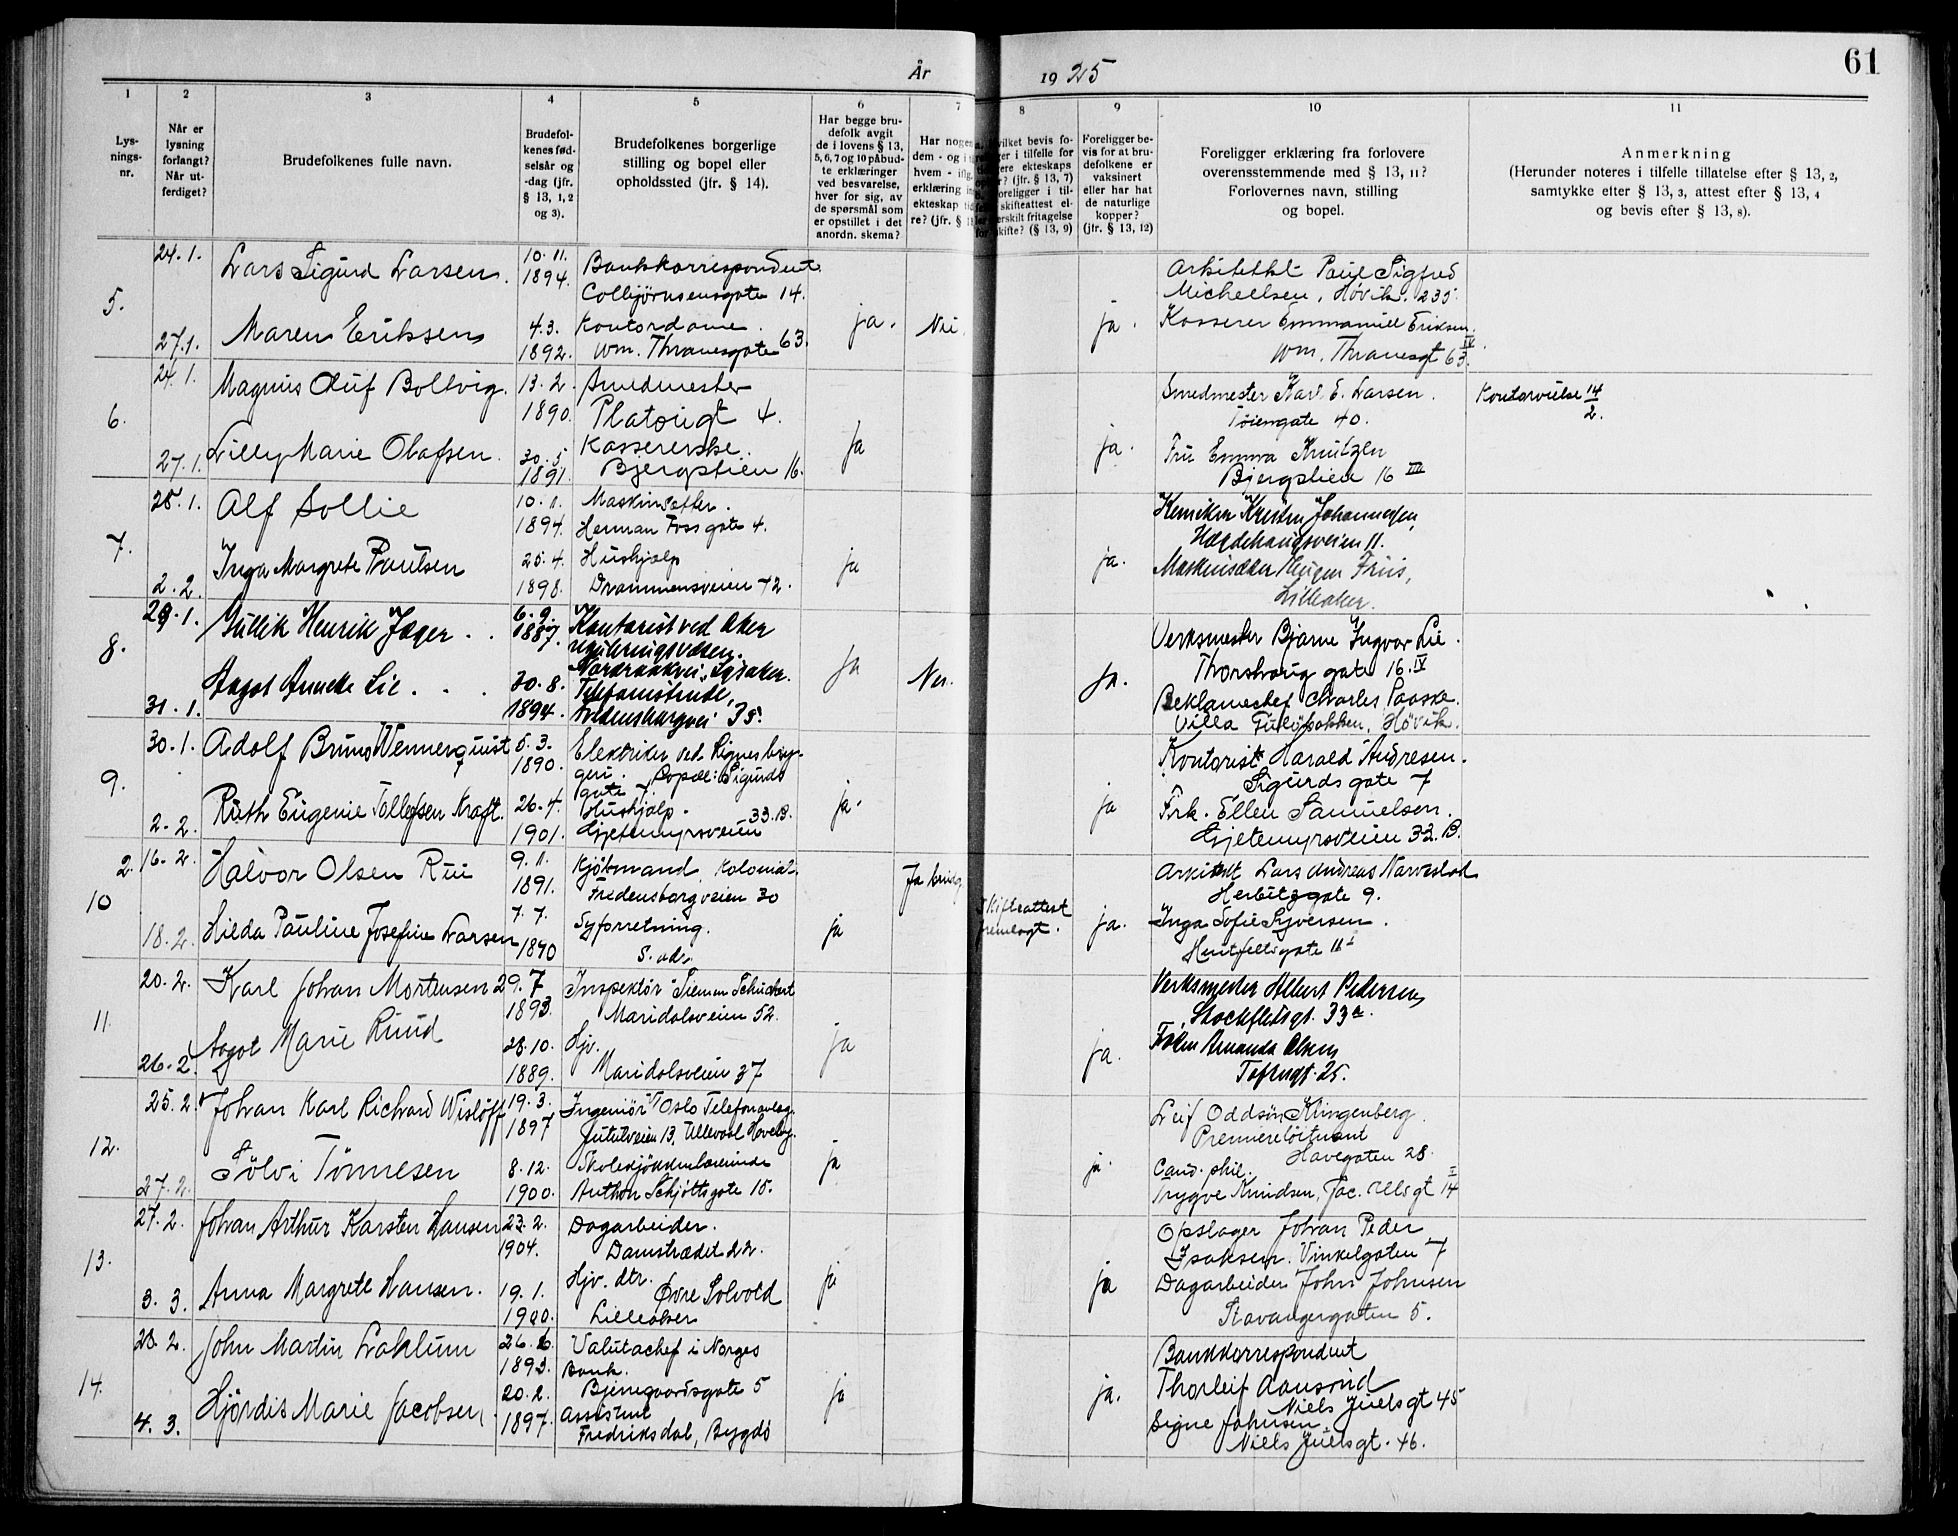 År 1925
61
1 2 3 4 5 6 7 8 9 10 11
Lys-
nings-
nr.
Når er
lysning
forlangt?
Når ut-
ferdiget?
Brudefolkenes fulle navn.
Brudefol-
kenes fød-
selsår og
-dag (jfr.
§ 13, 1, 2
og 3).
Brudefolkenes borgerlige
stilling og bopel eller
opholdssted (jfr. § 14).
Har begge bru-
defolk avgit
de i lovens § 13,
5, 6, 7 og 10 påbud-
te erklæringer
ved besvarelse,
hver for sig, av
de spørsmål som
er opstillet i det
anordn. skema?
Har nogen
dem - og i
hvem - iflg.
erklæring in
ekteskap tid
re? (jfr. §
vilket bevis fo-
ger i tilfelle for
ere ekteskaps
r? (jfr. § 13, 7)
oreligger i til-
skifteattest el-
erskilt fritagelse
skifte? (§ 13, 9)
Foreligger be-
vis for at bru-
defolkene er
vaksinert
eller har hat
de naturlige
kopper?
(jfr. § 13, 12)
Foreligger erklæring fra forlovere
overensstemmende med § 13, 11?
Forlovernes navn, stilling
og bopel.
Anmerkning
(Herunder noteres i tilfelle tillatelse efter § 13, 2,
samtykke efter § 13, 3, attest efter § 13, 4
og bevis efter § 13, 8).
5.
24.1. Lars Sigurd Larsen. 10.11. 1894. Bankkorrespondent
Colbjørnsensgate 14.
Arkitekt Paul Sigfred
Michelsen, Høvik. 235.
27.1. Maren Eriksen 4.3. 1892. Kontordame.
Wm. Thranesgate 63.
ja. Nei. ja.
Kasserer Emmanuel Eriksen.
Wm. Thranesgt 63. IV
6.
24.1. Magnus Oluf Boltvig. 13.2. 1890. Smedmester
Platousgt 4.
Smedmester Karl E. Larsen.
Tøiengate 40.
Kontorvielse 14/2.
27.1. Lilly Marie Olafsen. 30.5. 1891. Kassererske.
Bjergstien 16.
ja ja.
Fru Emma Knutzen
Bjergstien 16 III
7.
28.1. Alf Sollie 10.11. 1894. Maskinsetter.
Herman Fossgate 4.
Kemiker Kristen Johannessen,
Hegdehaugsveien 11.
2.2. Inga Margrete Paulsen 25.4. 1898. Hushjælp
Drammensveien 72.
ja ja.
Maskinsetter Hugen Friis,
Lilleaker.
8.
29.1. Gullik Henrik Jæger. 6.9. 1887. Kontorist ved Aker
reguleringsvæsen.
Nordraakvei, Lysaker.
Verksmester Bjarne Ingvar Lie.
Thorshaug gate 16. IV
31.1. Aagot Annette Lie. 30.8. 1894. Telefonistinde,
Fredensborgvei 35.
ja Nei. ja.
Reklamechef Charles Paaske.
Villa Furubakken, Høvik.
9.
30.1. Adolf Bruno Wennerquist 5.3. 1890. Elektriker ved Rignes bryg-
geri. Bopæl: Sigurds
gate 7.
Kontorist Harald Andresen.
Sigurds gate 7
2.2. Ruth Eugenie Tollefsen Kraft. 26.4. 1901. Hushjælp.
Gjetemyrsveien 33.B.
ja. ja
Frk. Ellen Samuelsen.
Gjetemyrsveien 33.B.
10
16.2. Halvor Olsen Rui 9.11. 1891. Kjøbmand, Kolonial.
Fredensborgveien 30
Arkitekt Lars Andreas Narvestad
Herbitzgate 9.
18.2. Hilda Pauline Josefine Larsen 7.7. 1890 Syforretning.
S. adr.
ja Skifteattest
fremlagt. ja.
Inga Sofie Syversen.
11.
20.2. Karl Johan Mortensen 29.7 1893. Inspektør Siemen Schuckert
Maridalsveien 52.
Verksmester Albert Pedersen,
Stockfletsgt. 33a.
26.2. Aagot Marie Ruud 28.10. 1889. Hjv.
Maridalsveien 37
ja ja.
Frøken Amanda Olsen
Toftesgt. 25.
12.
25.2. Johan Karl Richard Wisløff 19.3. 1897 Ingeniør v/ Oslo Telefonanlæg.
Jutulveien 13, Ullevaal Haveby.
Leif Oddsøn Klingenberg.
Premierløitnant
Havegaten 28.
27.2. Sølvi Tønnesen 8.12. 1900. Skolekjøkkenlærerinde
Anthon Schjøttsgate 15.
ja ja.
Cand. phil.
Trygve Knudsen, Jac. Aallsgt 14 I
13.
27.2. Johan Arthur Karsten Hansen 23.2. 1904. Dagarbeider.
Damstrædet 22.
Opslager Johan Peder
Isaksen. Vinkelgaten 7
3.3. Anna Margrete Hansen. 19.1. 1900. Hjv. dtr.
Øvre Solvold
Lilleaker
ja ja
Dagarbeider John Johnsen
Stavangergaten 5.
14.
28.2. John Martin Laklum 26.6. 1893. Valutachef i Norges
Bank.
Bjerregaardsgate 5
Bankkorrespondent
Thorleif Aamsrud
Niels Juelsgt 45
4.3. Hjørdis Marie Jacobsen. 20.2. 1897. Assistent
Fredriksdal, Bygdø
ja ja.
Signe Johnsen
Niels Juelsgt. 46.